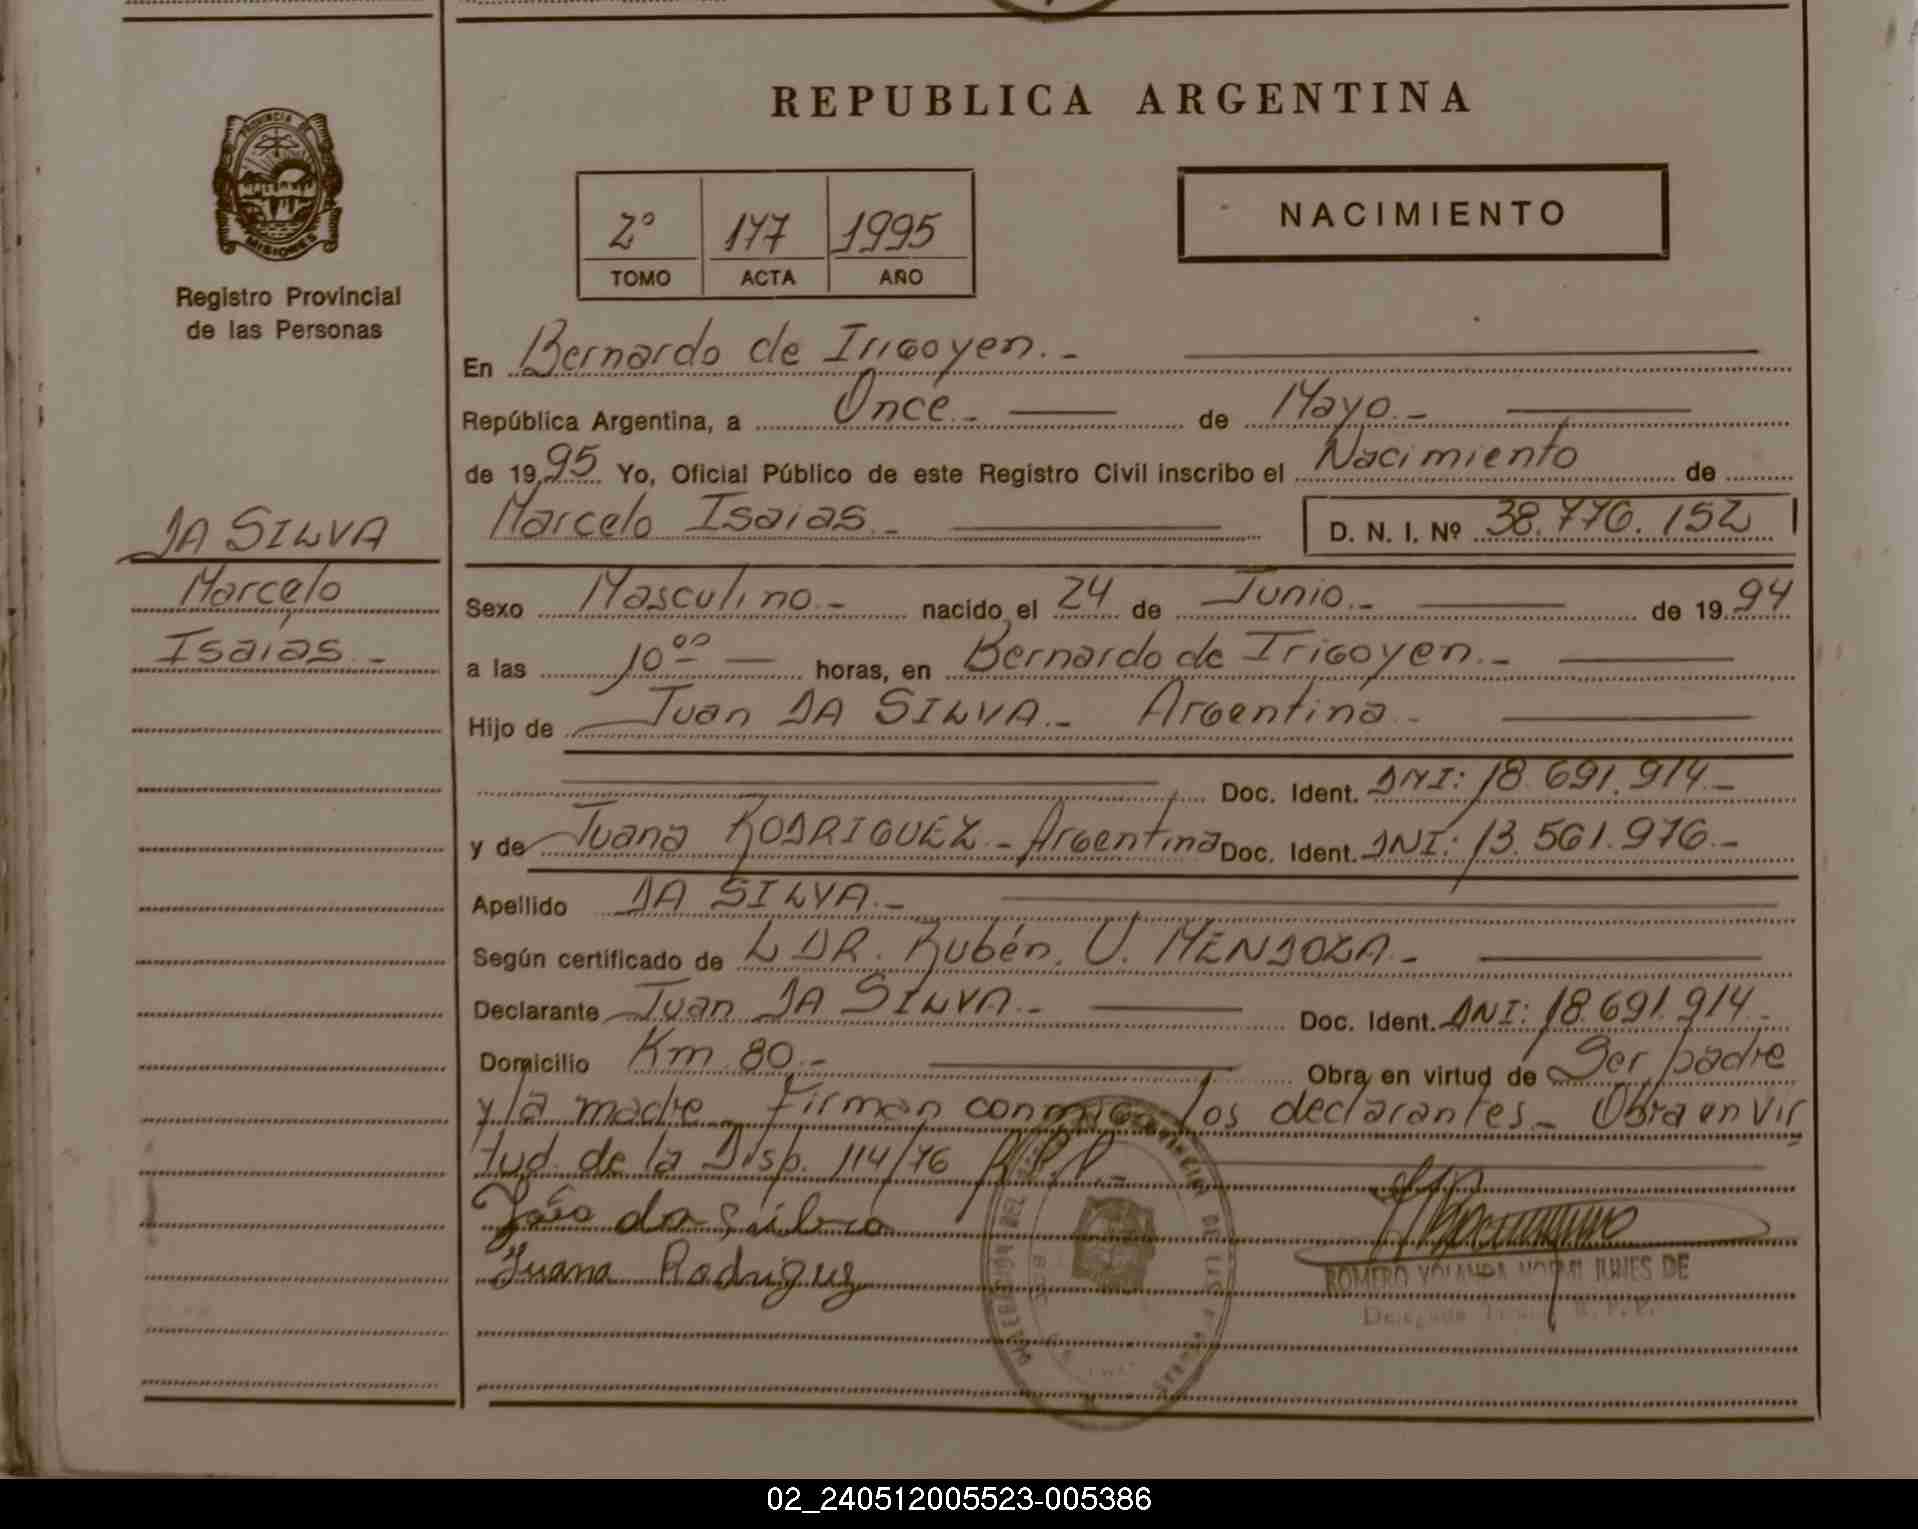 REPUBLICA ARGENTINA
PROVINCIA DE
MISIONES
Registro Provincial
de las Personas
2º 177 1995
TOMO ACTA AÑO
NACIMIENTO
En Bernardo de Irigoyen.-
República Argentina, a Once.- de Mayo.-
de 1995 Yo, Oficial Público de este Registro Civil inscribo el Nacimiento de
Marcelo Isaias.- D. N. I. Nº 38.776.152
DA SILVA
Marcelo
Isaias.-
Sexo Masculino.- nacido el 24 de Junio.- de 1994
a las 10⁰⁰ horas, en Bernardo de Irigoyen.-
Hijo de Juan DA SILVA.- Argentina.-
Doc. Ident. DNI: 18.691.914.-
y de Juana RODRIGUEZ.- Argentina Doc. Ident. DNI: 13.561.976.-
Apellido DA SILVA.-
Según certificado de L DR. Rubén. U. MENDOZA.-
Declarante Juan DA SILVA.- Doc. Ident. DNI: 18.691.914.-
Domicilio Km. 80.- Obra en virtud de Ser padre
y la madre.- Firman conmigo los declarantes.- Obra en vir
tud de la Disp. 114/76 R.P.P.-
João da Silva
Juana Rodriguez
ROMERO YOLANDA NORMI IUNES DE